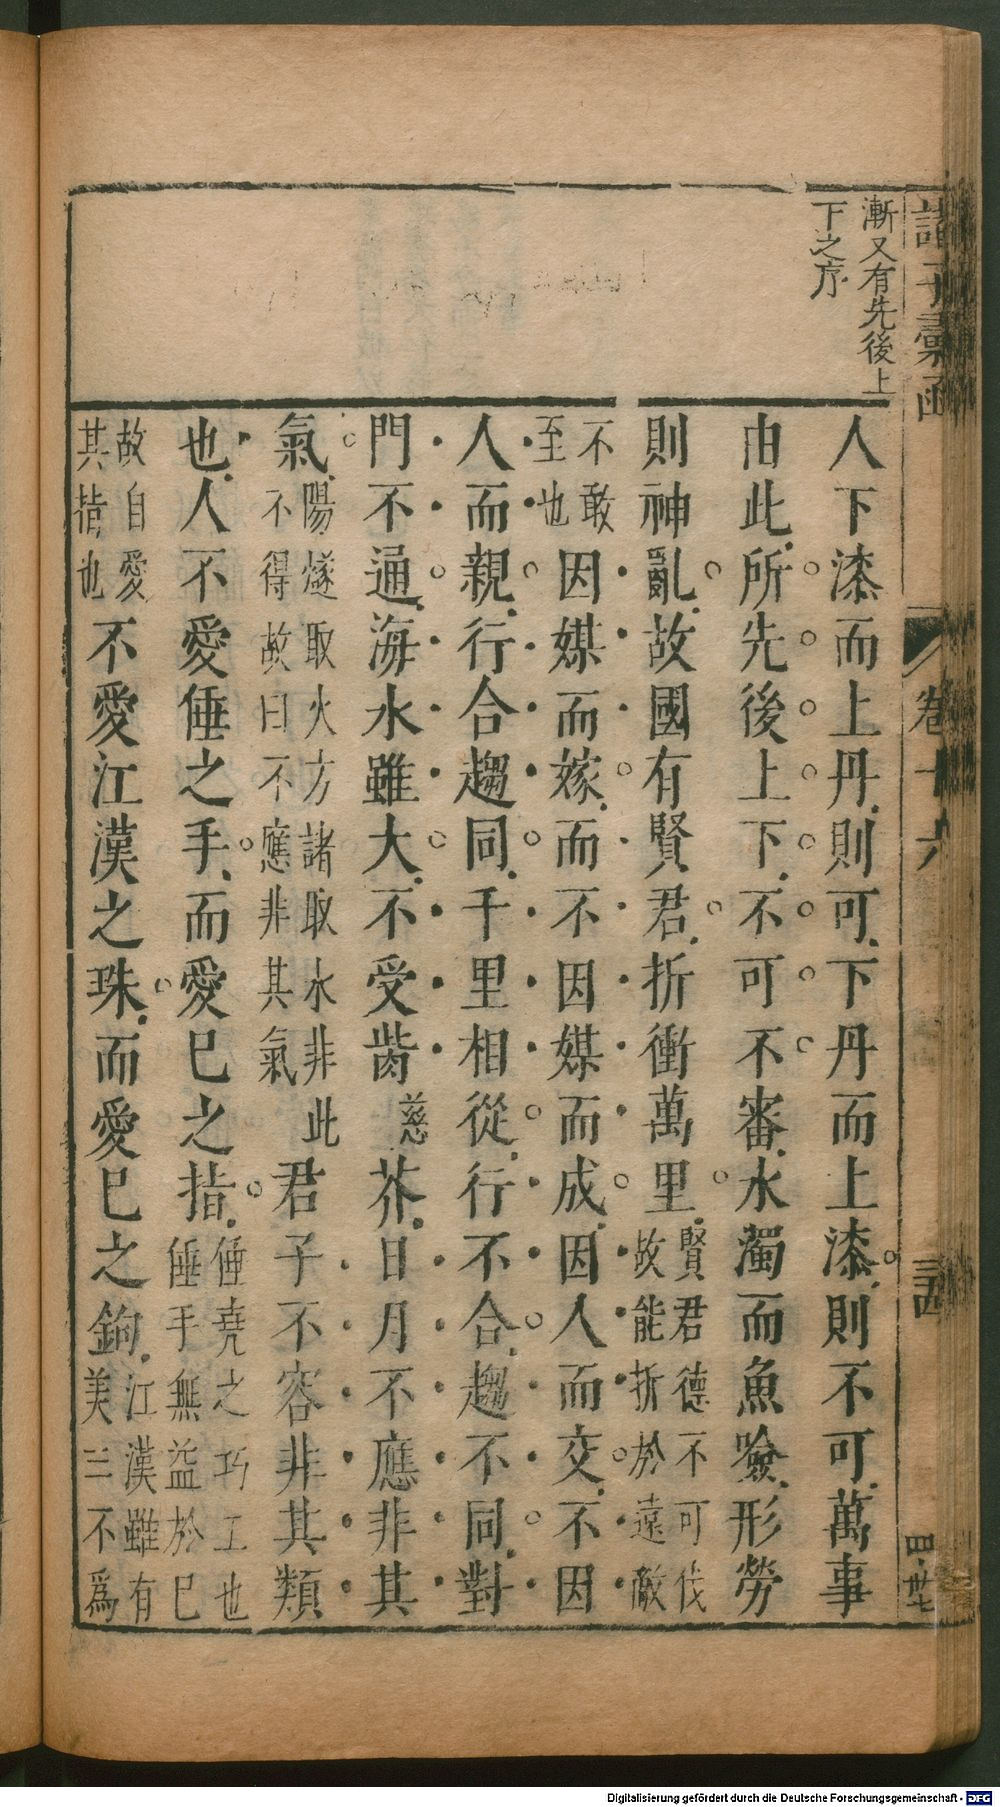 諸子彙函
卷十六
三四
四·廿七
漸又有先後上
下之序
人下漆而上丹則可下丹而上漆則不可萬事
由此所先後上下不可不審水濁而魚噞形勞
則神亂故國有賢君折衝萬里賢君德不可伐
故能折於遠敵
不敢
至也因媒而嫁而不因媒而成因人而交不因
人而親行合趨同千里相從行不合趨不同對
門不通海水雖大不受胔慈芥日月不應非其
氣陽燧取火方諸取水非此
不得故曰不應非其氣君子不容非其類
也人不愛倕之手而愛已之指倕堯之巧工也
倕手無益於已
故自愛
其指也不愛江漢之珠而愛已之鉤江漢雖有
美㺯不爲
Digitalisierung gefördert durch die Deutsche Forschungsgemeinschaft - DFG